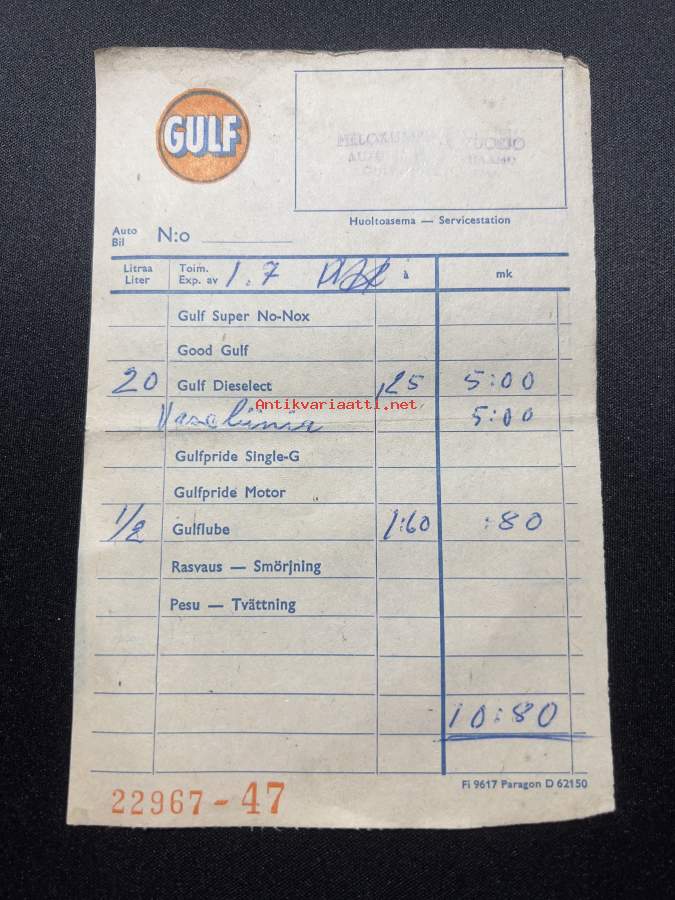 GULF
Huoltoasema — Servicestation
Auto
Bil N:o
Litraa
Liter
Toim.
Exp. av 1.7
à
mk
Gulf Super No-Nox
Good Gulf
20 Gulf Dieselect ,25 5:00
Antikvariaatti.net
5:00
Gulfpride Single-G
Gulfpride Motor
1/2 Gulflube 1:60 :80
Rasvaus — Smörjning
Pesu — Tvättning
10:80
Fi 9617 Paragon D 62150
22967-47